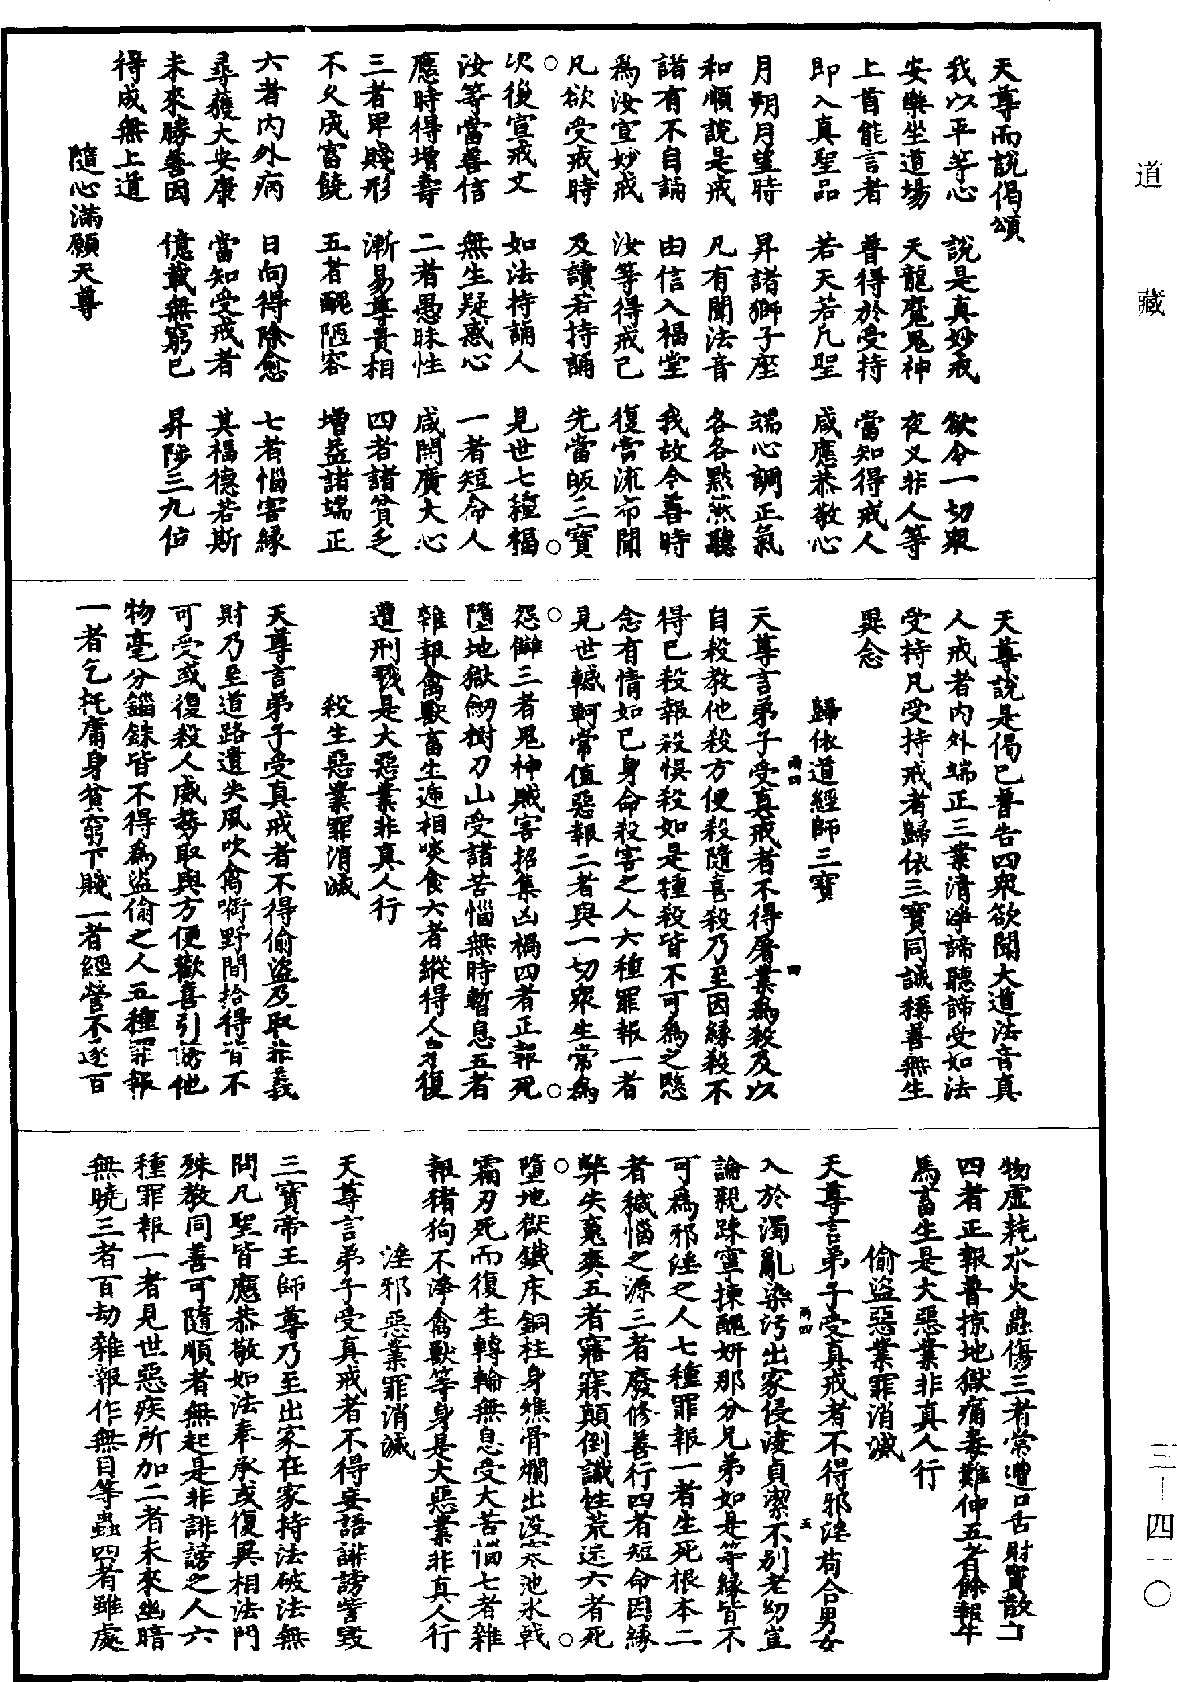 天尊而說偈頌
我以平等心　說是真妙戒　欲令一切衆
安樂坐道場　天龍魔鬼神　夜叉非人等
上首能言者　普得於受持　當知得戒人
即入真聖品　若天若凡聖　咸應恭敬心
月朔月望時　昇諸獅子座　端心調正氣
和順說是戒　凡有聞法音　各各默然聽
諸有不自誦　由信入福堂　我故令善時
為汝宣妙戒　汝等得戒已　復當流布聞
凡欲受戒時　及讀若持誦　先當皈三寶
次後宣戒文　如法持誦人　見世七種福
汝等當善信　無生疑惑心　一者短命人
應時得增壽　二者愚昧性　咸開廣大心
三者卑賤形　漸易尊貴相　四者諸貧乏
不久成富饒　五者醜陋容　增益諸端正
六者內外病　日向得除愈　七者惱害緣
尋獲大安康　當知受戒者　其福德若斯
未來勝善因　億載無窮已　昇陟三九位
得成無上道
隨心滿願天尊
天尊說是偈已普告四衆欲聞大道法音真
人戒者內外端正三業清淨諦聽諦受如法
受持凡受持戒者歸依三寶同誠稱善無生
異念
歸依道經師三寶
天尊言弟子受真戒者不得屠業為殺及以
自殺教他殺方便殺隨喜殺乃至因緣殺不
得已殺報殺悞殺如是種殺皆不可為之愍
念有情如已身命殺害之人六種罪報一者
見世轗軻常值惡報二者與一切衆生常為
怨讎三者鬼神賊害招集凶禍四者正報死
墮地獄劒樹刀山受諸苦惱無時暫息五者
雜報禽獸畜生遞相啖食六者縱得人身復
遭刑戮是大惡業非真人行
殺生惡業罪消滅
天尊言弟子受真戒者不得偷盜及取非義
財乃至道路遺失風吹禽啣野間拾得皆不
可受或復殺人威勢取與方便歡喜引誘他
物毫分錙銖皆不得為盜偷之人五種罪報
一者乞托庸身貧窮下賤二者經營不遂百
物虛耗水火蟲傷三者常遭口舌財寶散亡
四者正報普掠地獄痛毒難伸五者餘報牛
馬畜生是大惡業非真人行
偷盜惡業罪消滅
天尊言弟子受真戒者不得邪淫苟合男女
入於濁亂染污出家侵凌貞潔不別老幼豈
論親疎寧揀醜妍那分兄弟如是等緣皆不
可為邪淫之人七種罪報一者生死根本二
者穢惱之源三者廢修善行四者短命因緣
弊失䰟爽五者寤寐顛倒識性荒迷六者死
墮地獄鐵床銅柱身燋骨爛出没寒池氷戟
霜刃死而復生轉輪無息受大苦惱七者雜
報猪狗不淨禽獸等身是大惡業非真人行
淫邪惡業罪消滅
天尊言弟子受真戒者不得妄語誹謗訾毀
三寶帝王師尊乃至出家在家持法破法無
問凡聖皆應恭敬如法奉承或復異相法門
殊教同善可隨順者無起是非誹謗之人六
種罪報一者見世惡疾所加二者未來幽暗
無曉三者百劫雜報作無目等蟲四者雖處
道藏
三—四一〇